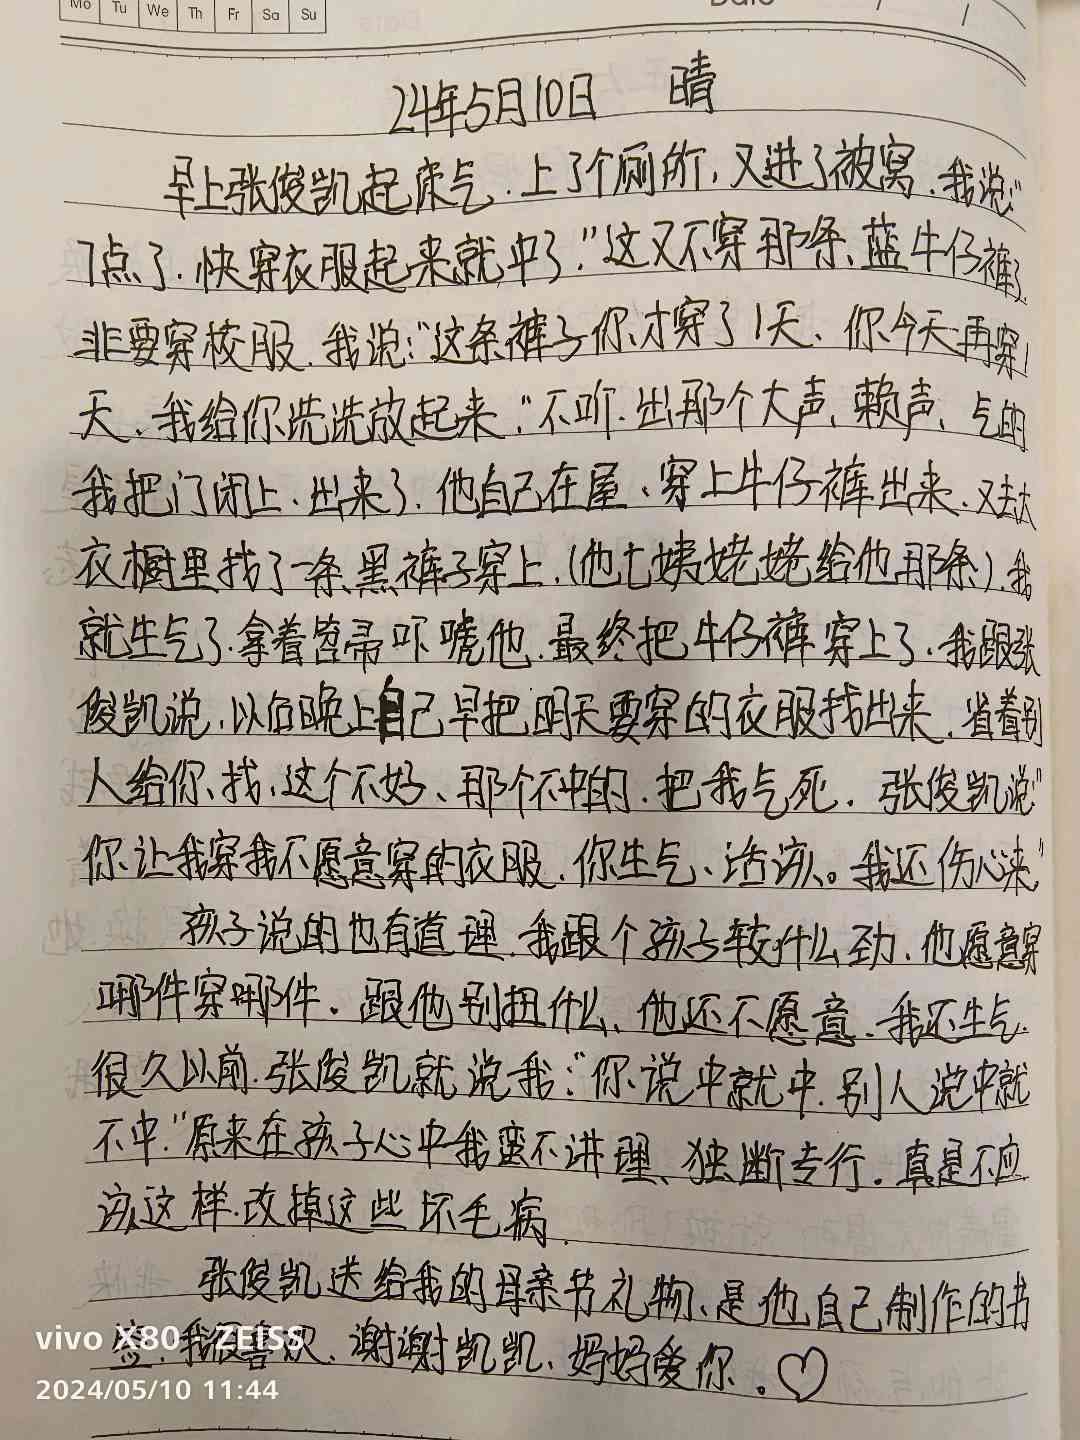 Mo Tu We Th Fr Sa Su
Date / /
24年5月10日 晴
早上张俊凯起床气.上了个厕所,又进了被窝.我说:"
7点了.快穿衣服起来就中了."这又不穿那条、蓝牛仔裤了.
非要穿校服.我说:"这条裤子你才穿了1天、你今天再穿1
天、我给你洗洗放起来."不听.出那个大声、赖声、气的
我把门闭上、出来了.他自己在屋、穿上牛仔裤出来.又去大
衣橱里找了一条黑裤子穿上.(他七姨姥姥给他那条).我
就生气了.拿着笤帚吓唬他.最终把牛仔裤穿上了.我跟张
俊凯说.以后晚上自己早把明天要穿的衣服找出来.省着别
人给你找,这个不好、那个不中的.把我气死.张俊凯说"
你让我穿我不愿意穿的衣服.你生气、活该。我还伤心来"
孩子说的也有道理.我跟个孩子较什么劲.他愿意穿
哪件穿哪件.跟他别扭什么、他还不愿意.我还生气.
很久以前.张俊凯就说我:"你说中就中.别人说中就
不中."原来在孩子心中我蛮不讲理、独断专行.真是不应
该这样.改掉这些坏毛病.
张俊凯送给我的母亲节礼物、是他自己制作的书
签.我很喜欢.谢谢凯凯、妈妈爱你.♡
vivo X80 · ZEISS
2024/05/10 11:44